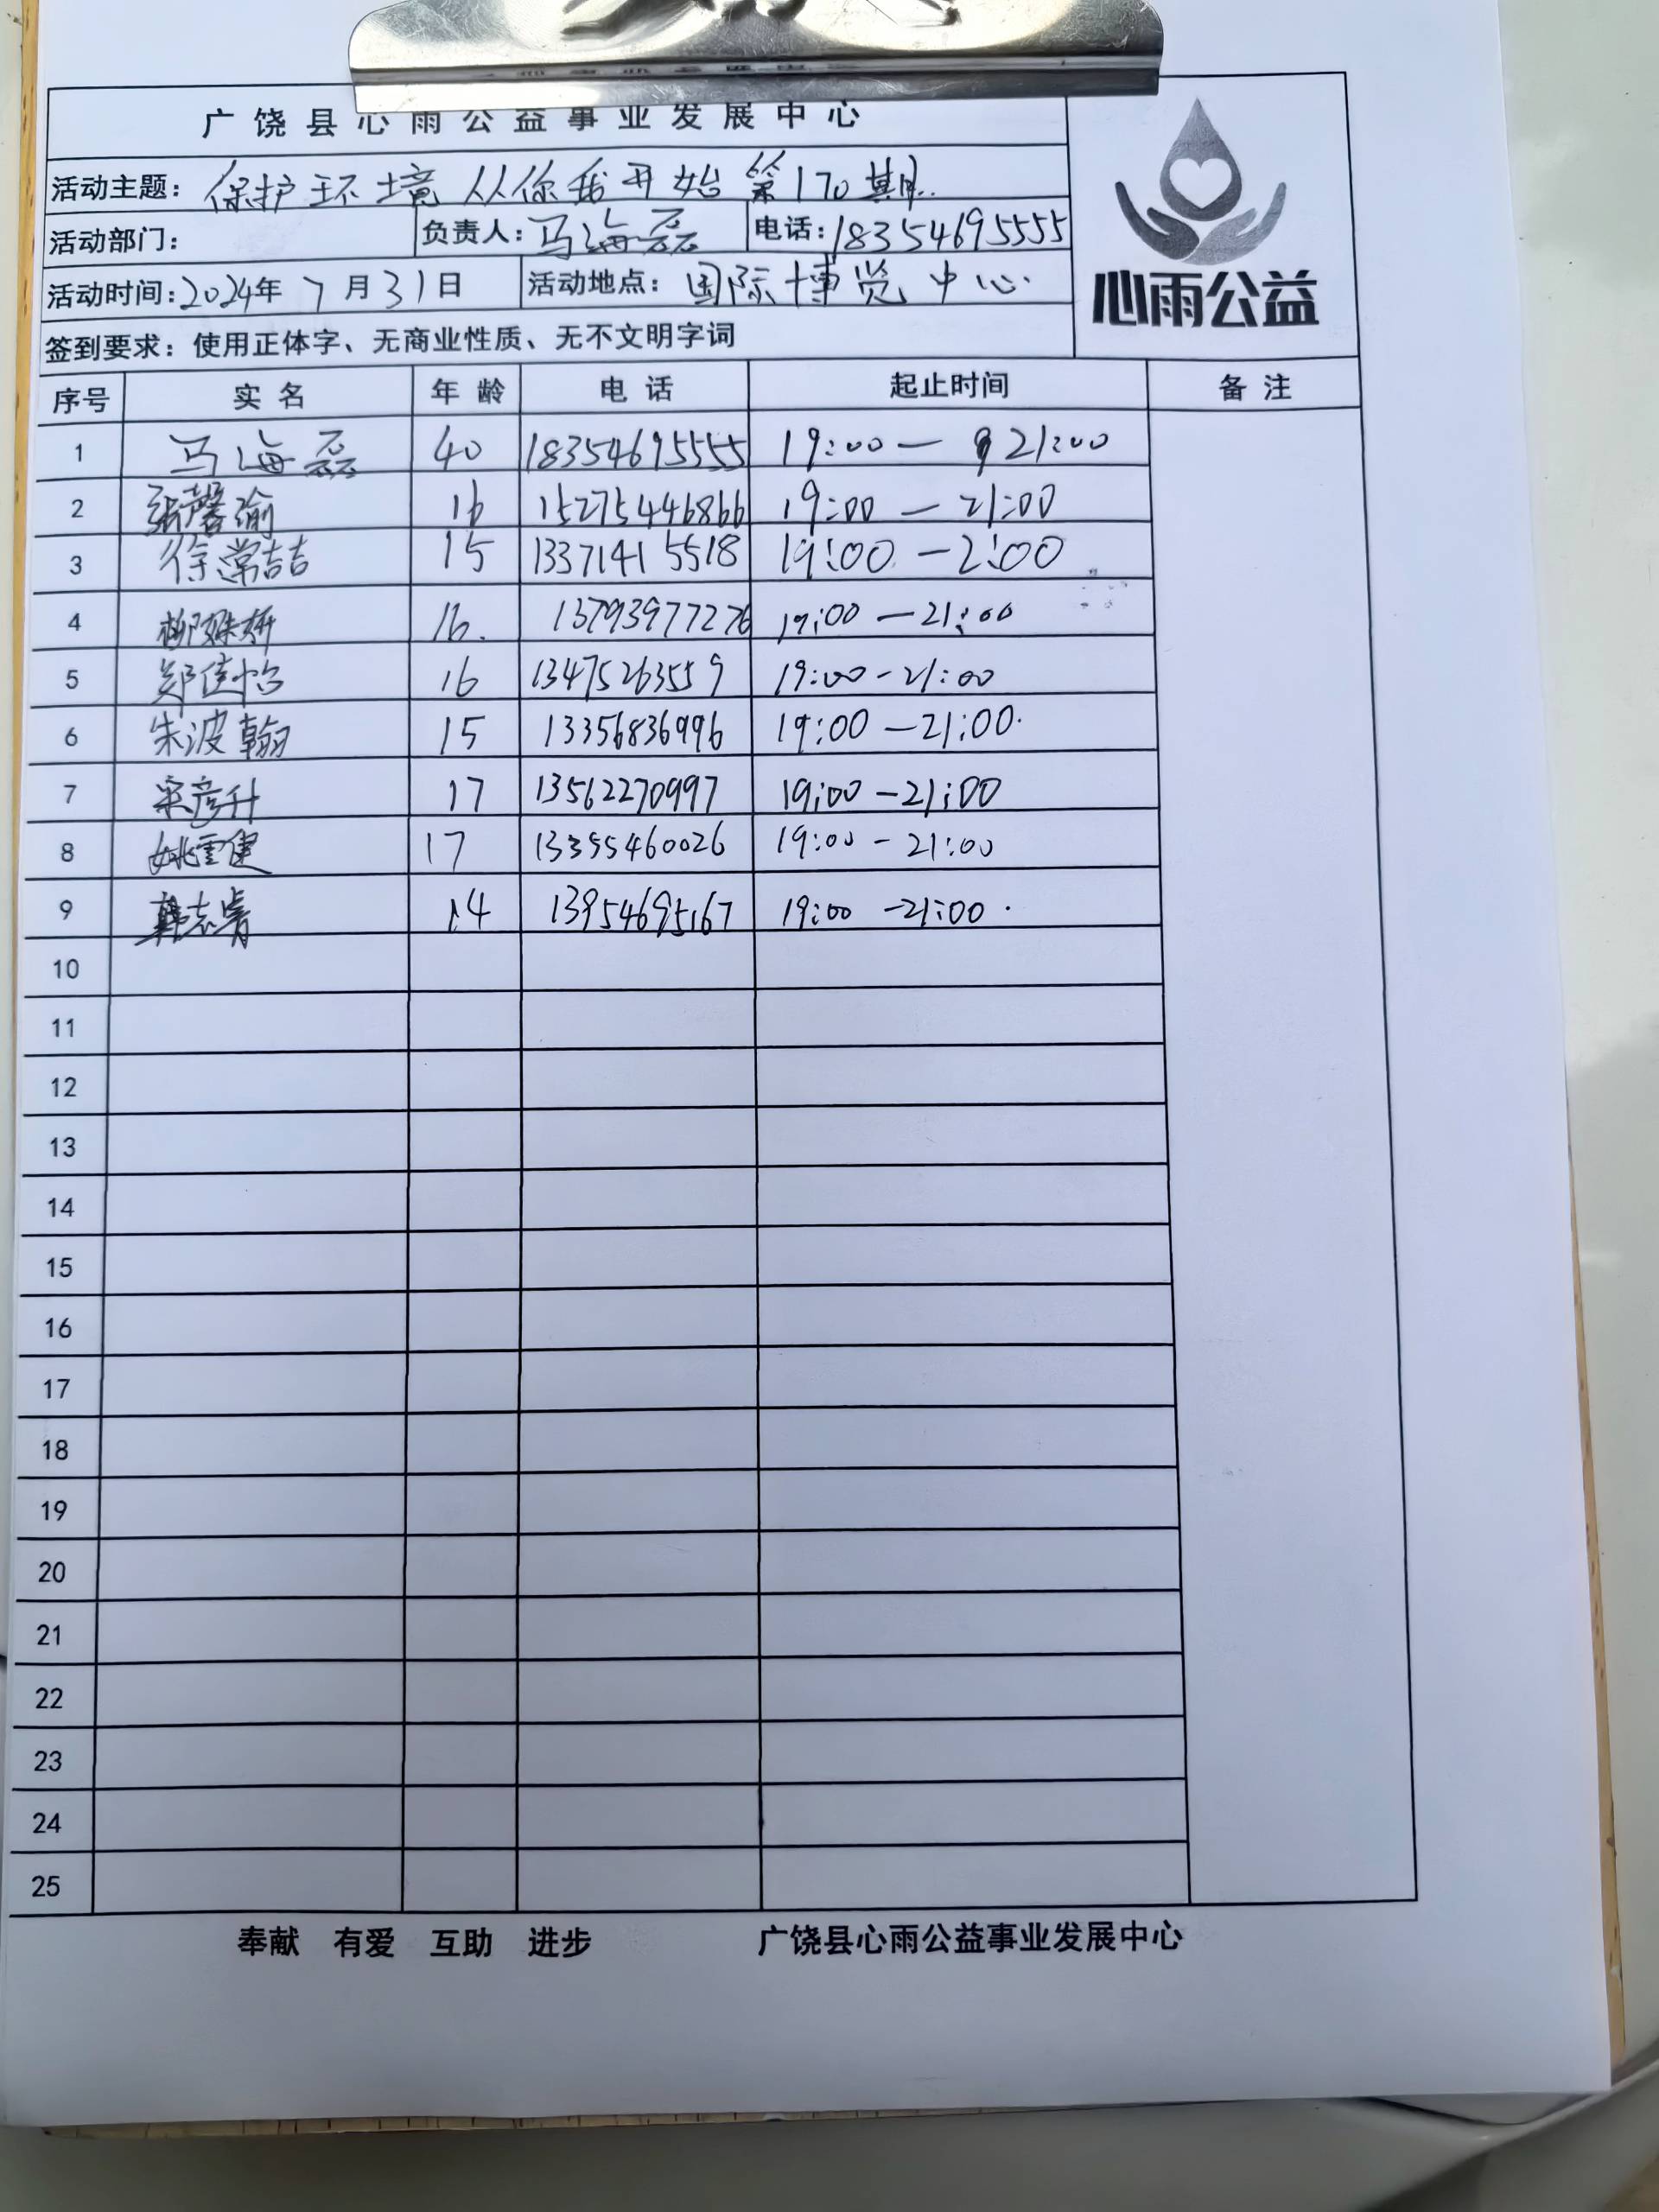 广饶县心雨公益事业发展中心
活动主题：保护环境从你我开始第170期.
活动部门：　负责人：马海磊　电话：18354695555
活动时间：2024年7月31日　活动地点：国际博览中心.
心雨公益
签到要求：使用正体字、无商业性质、无不文明字词
序号　实名　年龄　电话　起止时间　备注
1　马海磊　40　18354695555　19:00—21:00
2　张馨瑜　16　15275446866　19:00—21:00
3　徐常喆　15　13371415518　19:00—2:00
4　柳　16.　13793977276　19:00—21:00
5　郑佳怡　16　13475263559　19:00-21:00
6　朱波翰　15　13356836996　19:00—21:00.
7　宋彦升　17　13562270997　19:00—21:00
8　姚雪健　17　13355460026　19:00-21:00
9　韩志　14　13954695167　19:00-21:00.
10
11
12
13
14
15
16
17
18
19
20
21
22
23
24
25
奉献　有爱　互助　进步　广饶县心雨公益事业发展中心